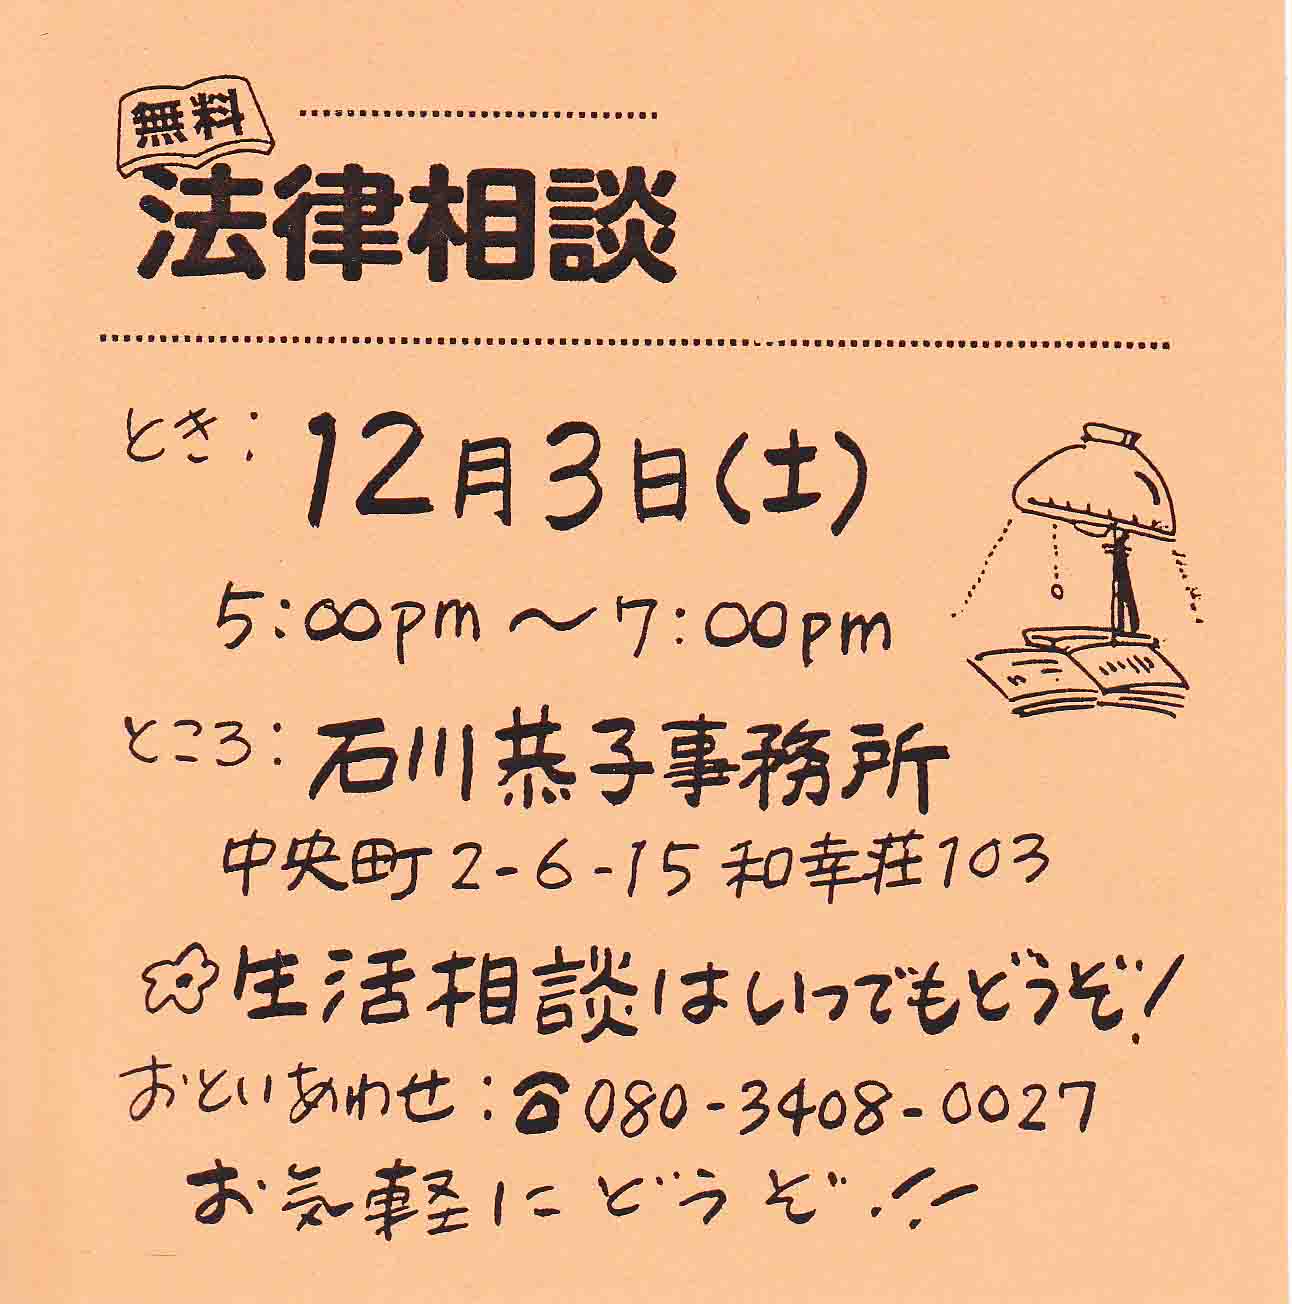 無料
法律相談
とき: 12月3日(土)
5:00pm〜7:00pm
ところ: 石川恭子事務所
中央町2-6-15 和幸荘103
生活相談はいつでもどうぞ!
おといあわせ:☎080-3408-0027
お気軽にどうぞ!!